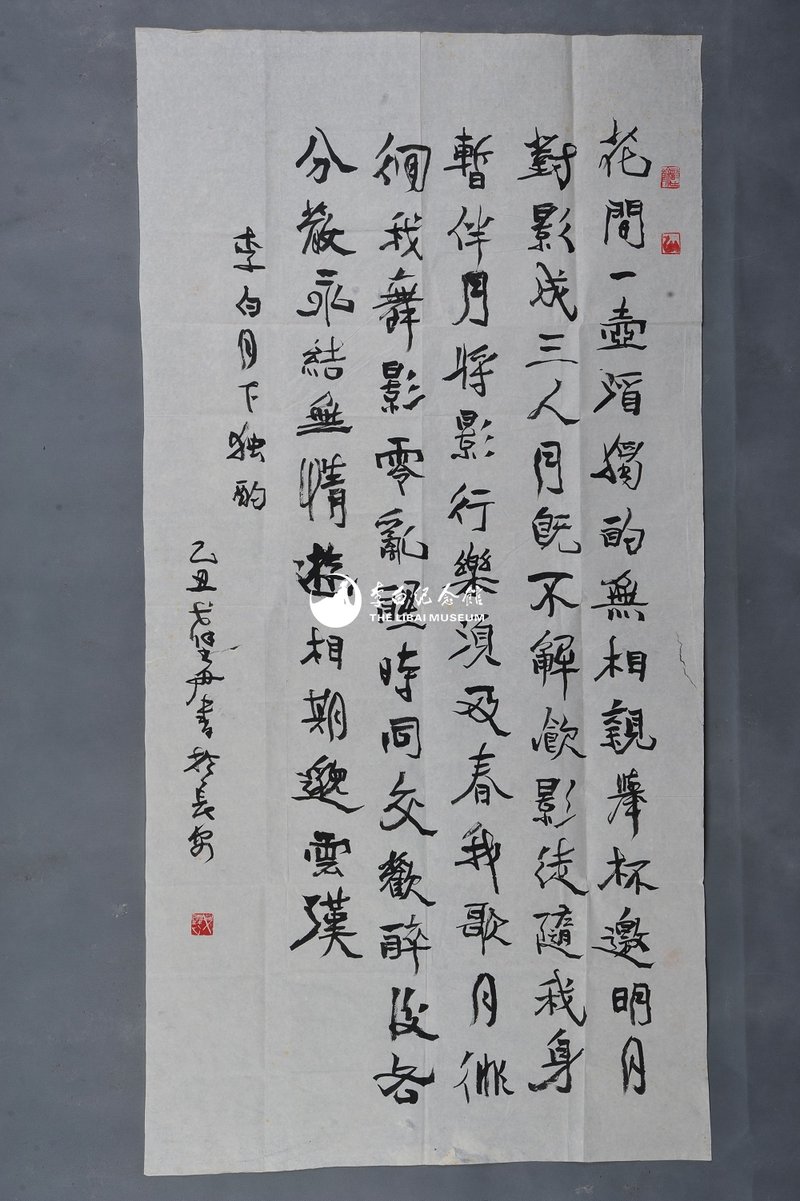 花間一壺酒獨酌無相親舉杯邀明月
對影成三人月既不解飲影徒隨我身
暫伴月將影行樂須及春我歌月徘
徊我舞影零亂醒時同交歡醉後各
分散永結無情遊相期邈雲漢
李白月下独酌
乙丑 書於長安
李白纪念館
THE LIBAI MUSEUM